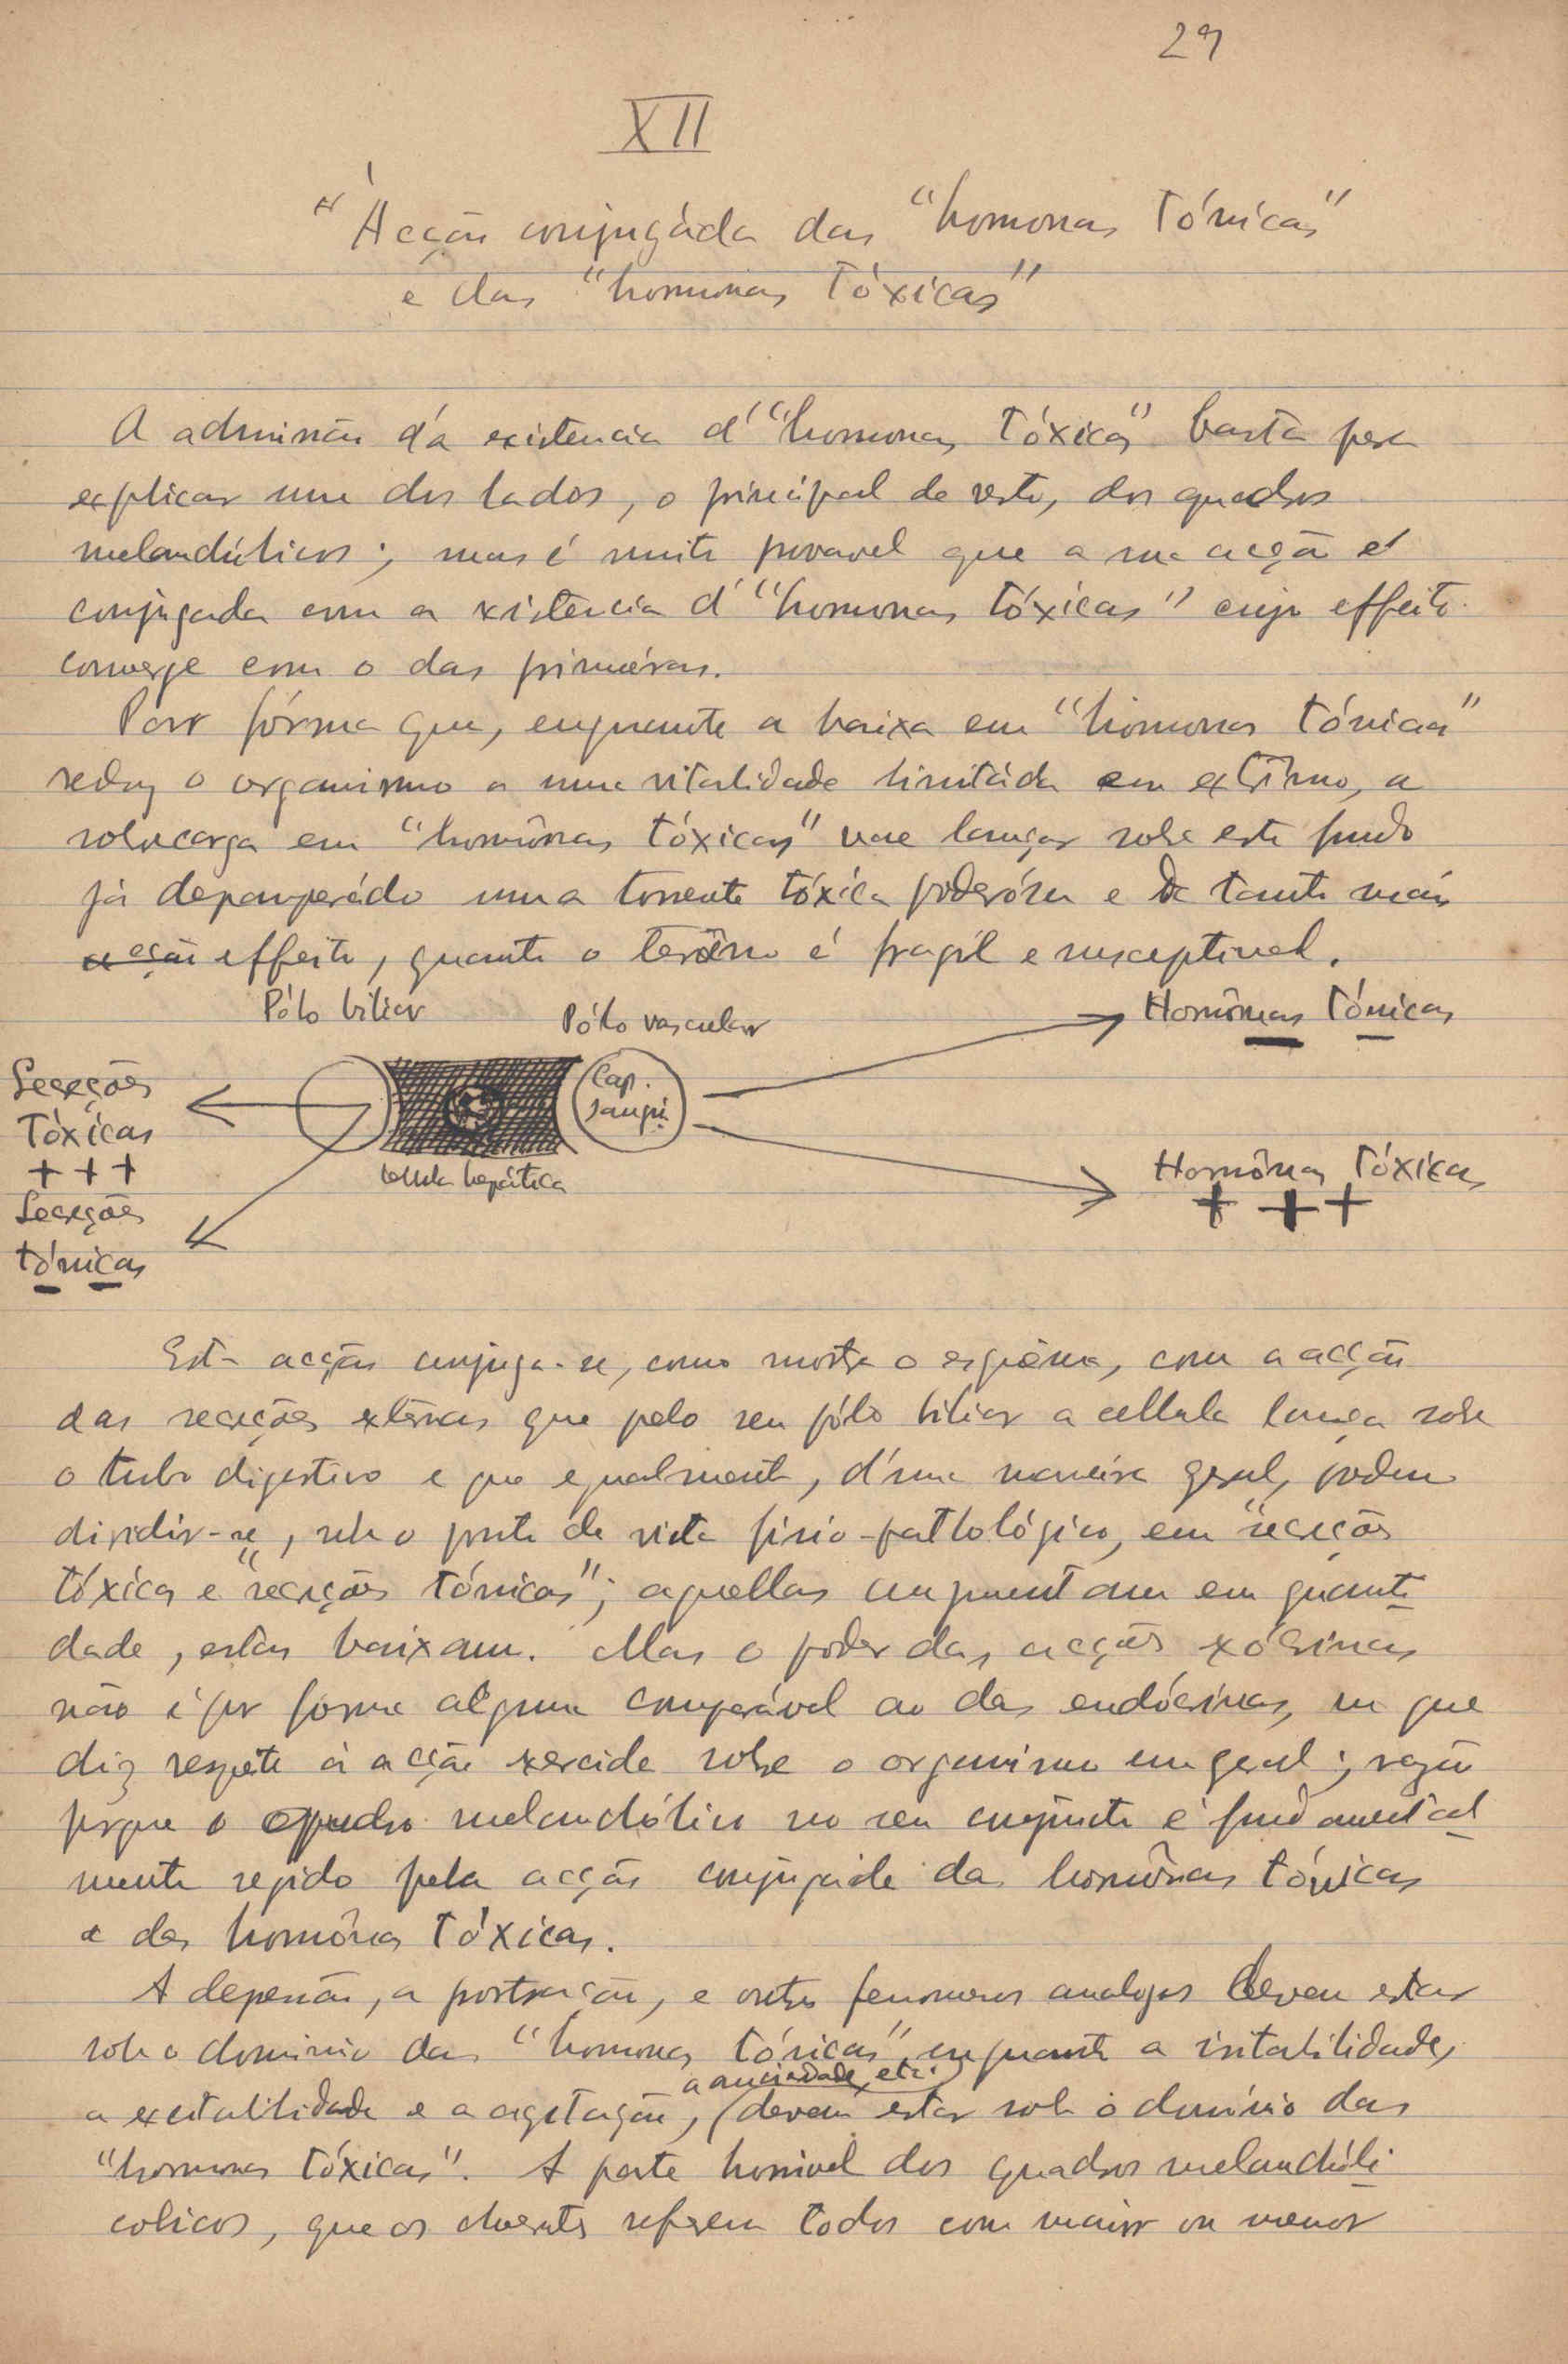 29
XII
"Acção conjugáda das "hormonas Tónicas"
e das "hormonas Tóxicas"
A admissão d'a existencia d'"hormonas Tóxicas" basta para
explicar um dos lados, o principal de resto, dos quadros
melanchólicos; mas é muito provavel que a sua acção é
conjugada com a existência d'"hormonas tóxicas" cujo effeito
converge com o das primeiras.
Por fórma que, enquanto a baixa em "hormonas tónicas"
reduz o organismo a uma vitalidade limitáda em extrêmo, a
sobrecarga em "hormônas tóxicas" vae lançar sobre este fundo
já depauperádo uma torrente tóxica poderósa e de tanto mais
acção effeito, quanto o terrêno é fragil e susceptivel.
Pólo biliar
Pólo vascular
Hormônas Tónicas
Secreções
Tóxicas
+ + +
Secreções
tónicas
Cap.
sangu.
Cellula hepática
Hormônas Tóxicas
+ + +
Esta acção conjuga-se, como mostra o esquêma, com a acção
das secreções extérnas que pelo seu pólo biliar a cellula lança sobre
o tubo digestivo e que egualmente, d'uma maneira geral, podem
dividir-se, sob o ponto de vista fisio-pathológico, em "secreções
tóxicas e "secreções tónicas"; aquellas augmentam em quanti
dade, estas baixam. Mas o poder das acções exócrinas
não é por forma alguma comparável ao das endócrinas, no que
diz respeito á acção exercida sobre o organismo em geral; razão
porque o quadro melanchólico no seu conjuncto é fundamental
mente regido pela acção conjugada das hormônas tónicas
e das hormônas Tóxicas.
A depressão, a prostração, e outros fenomenos analogos devem estar
sob o dominio das "hormonas tónicas", enquanto a irritabilidade,
a anciedade, etc.
a excitabilidade e a agitação, (devem estar sob o domínio das
"hormonas tóxicas". A parte horrivel dos quadros melanchóli
colicos, que os doentes referem todos com maior ou menor